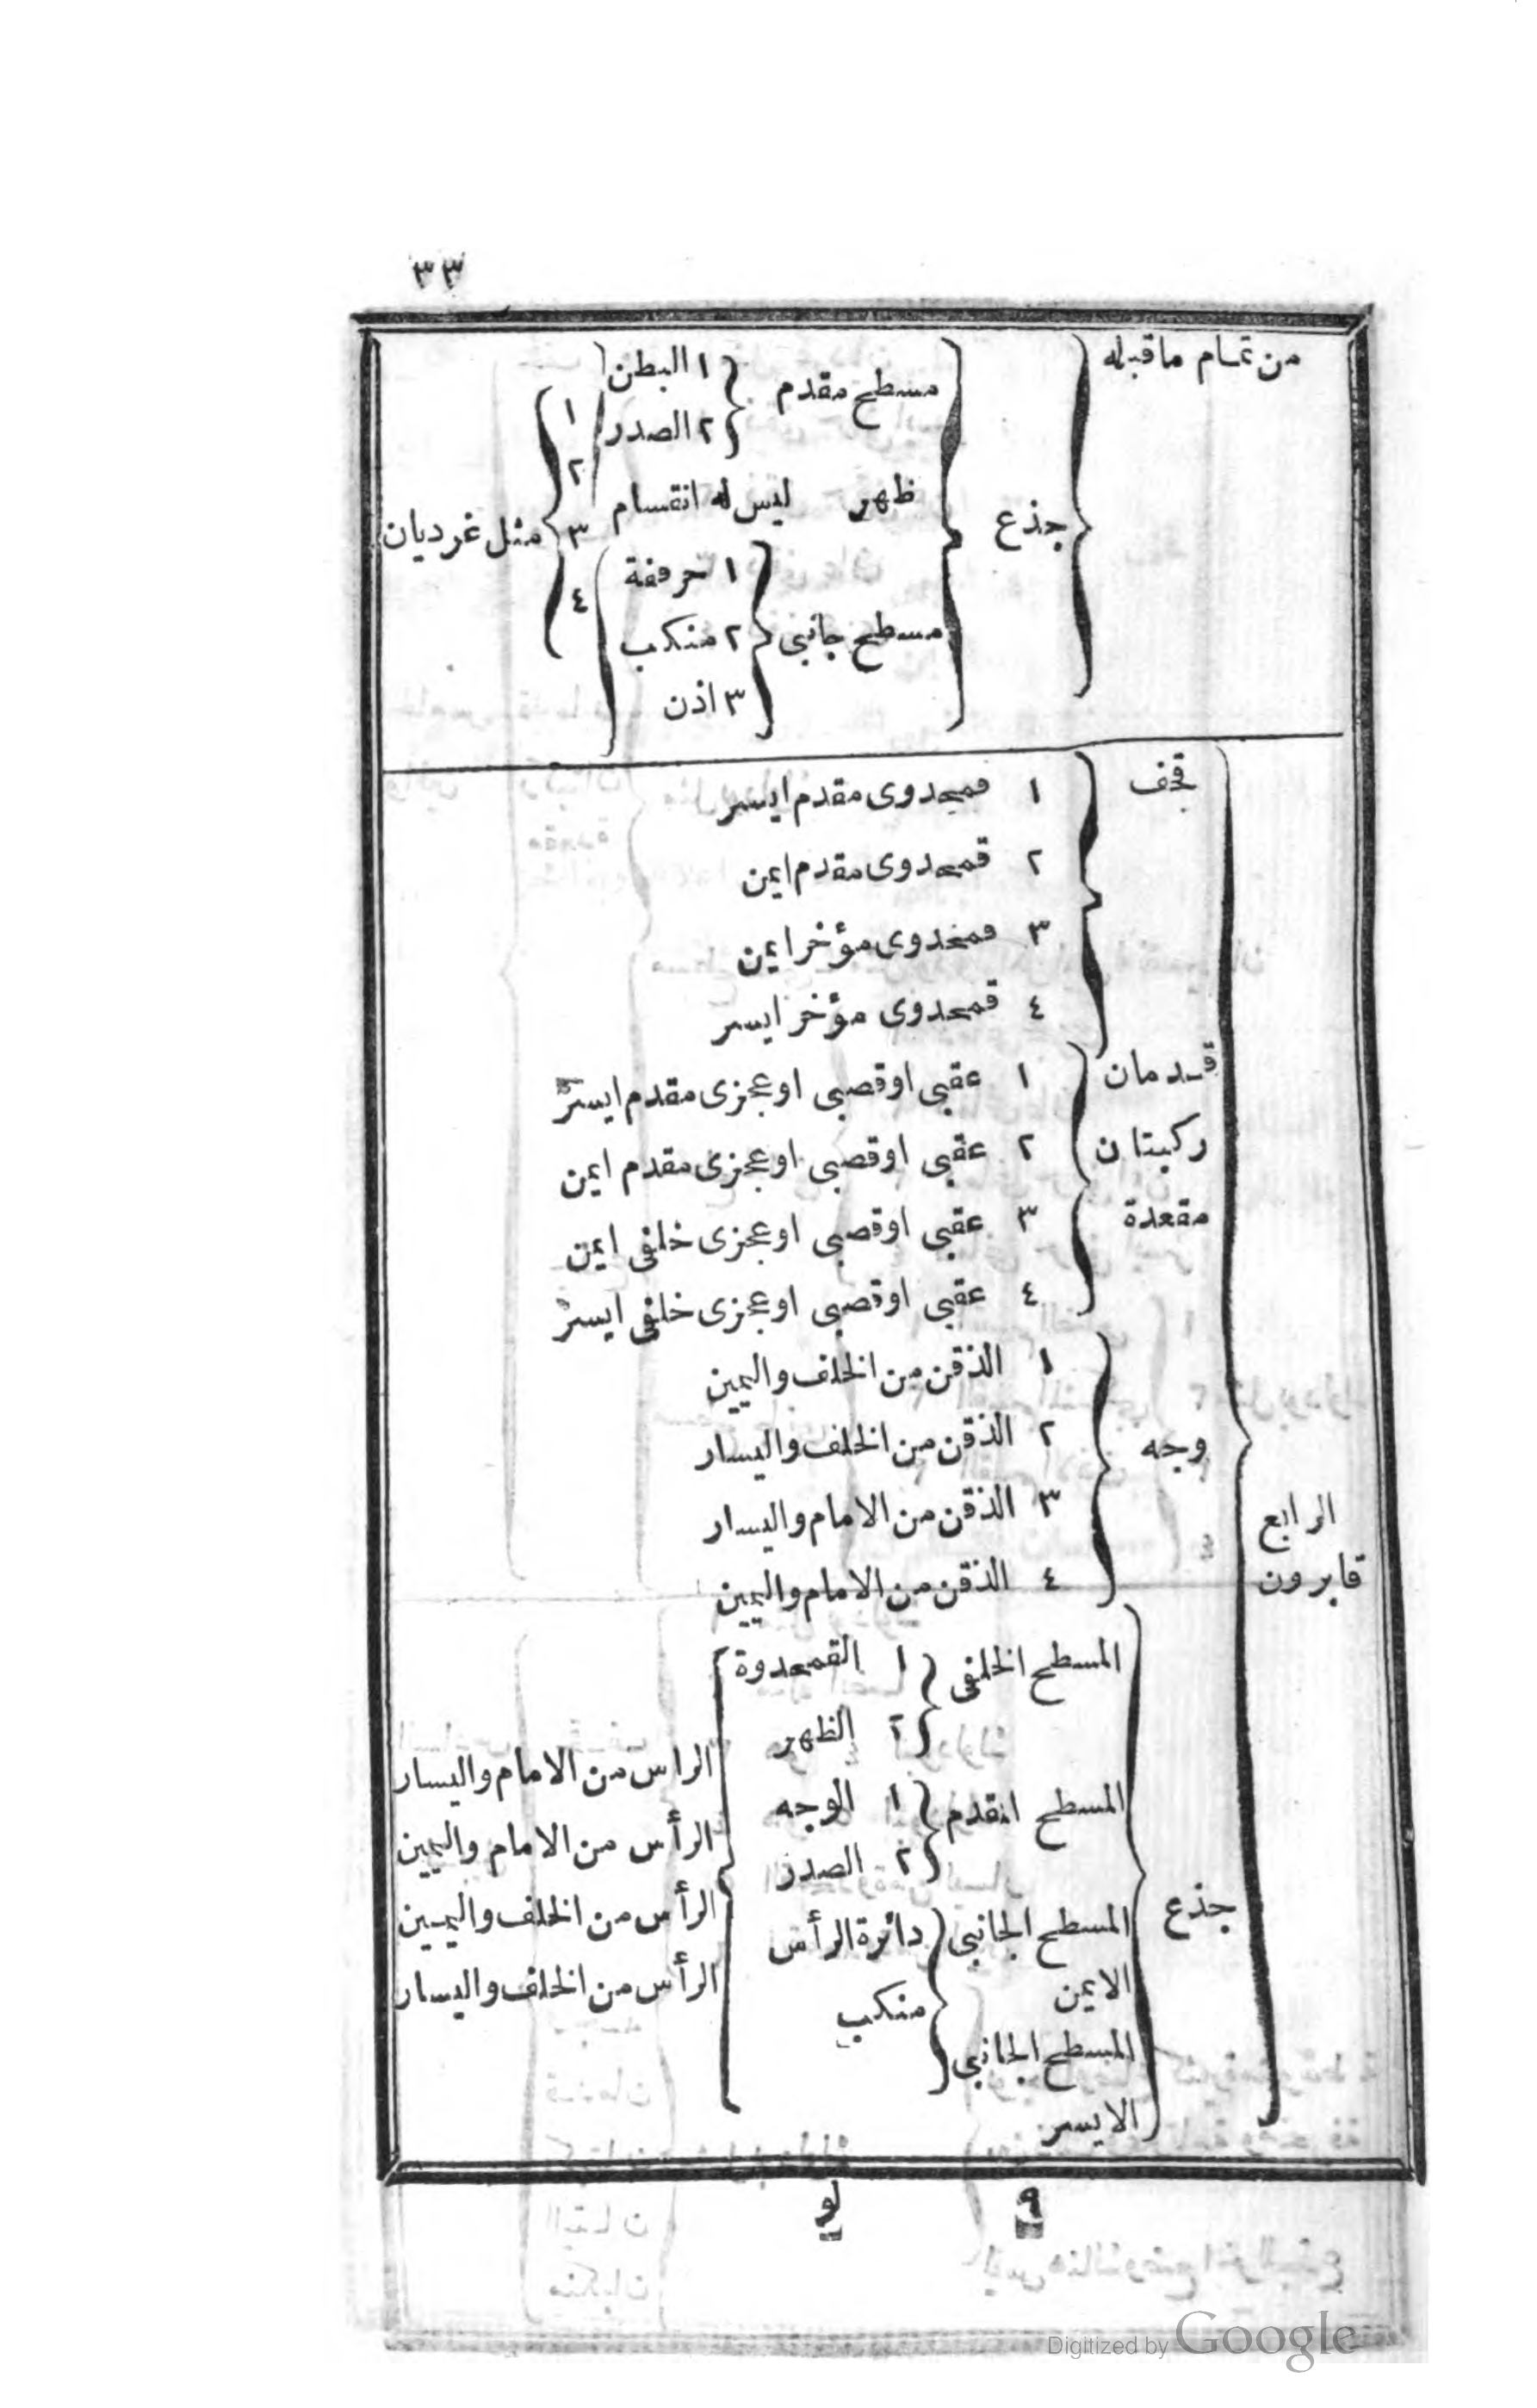 ٣٣
من تمام ماقبله
جذع
مسطح مقدم
١ البطن
٢ الصدر
ظهر ليس له انقسام
مسطح جانبى
١ حرقفة
٢ منكب
٣ اذن
١
٢
٣
٤
مثل غرديان
الرابع
قابرون
قحف
١ قمحدوى مقدم ايسر
٢ قمحدوى مقدم ايمن
٣ قمحدوى مؤخر ايمن
٤ قمحدوى مؤخر ايسر
قدمان
ركبتان
مقعدة
١ عقبى اوقصبى اوعجزى مقدم ايسر
٢ عقبى اوقصبى اوعجزى مقدم ايمن
٣ عقبى اوقصبى اوعجزى خلفى ايمن
٤ عقبى اوقصبى اوعجزى خلفى ايسر
وجه
١ الذقن من الخلف واليمين
٢ الذقن من الخلف واليسار
٣ الذقن من الامام واليسار
٤ الذقن من الامام واليمين
جذع
المسطح الخلفى
١ القمحدوة
٢ الظهر
المسطح المقدم
١ الوجه
٢ الصدر
المسطح الجانبى
الايمن
المسطح الجانبى
الايسر
دائرة الرأس
منكب
الراس من الامام واليسار
الرأس من الامام واليمين
الرأس من الخلف واليمين
الرأس من الخلف واليسار
٩ لو
Digitized by Google